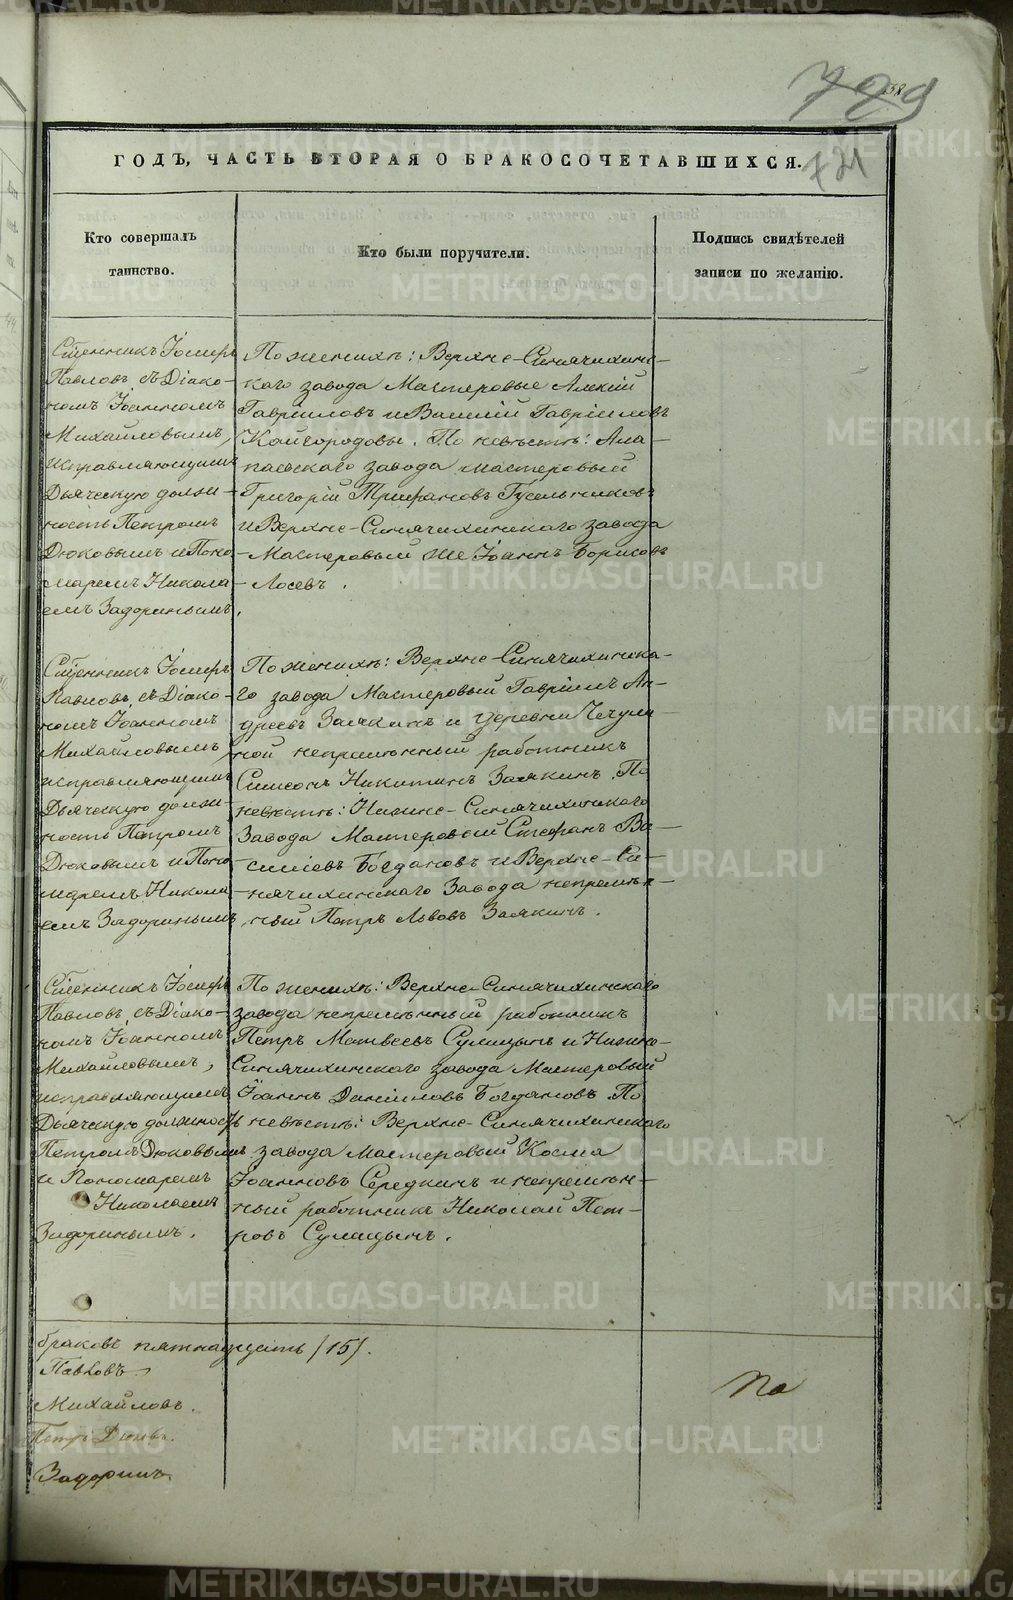 729
58
ГОДЪ, ЧАСТЬ ВТОРАЯ О БРАКОСОЧЕТАВШИХСЯ.
721
Кто совершалъ
таинство.
Кто были поручители.
Подпись свидѣтелей
записи по желанію.
Сщенникъ Іосифъ
Павловъ съ Діако-
номъ Іоанномъ
Михайловымъ,
исправляющимъ
Дьяческую долж-
ность Петромъ
Дюковымъ и Поно-
маремъ Никола-
емъ Задоринымъ.
По женихѣ: Верхне-Синячихинс-
каго завода Мастеровые Алексій
Гавріиловъ и Василій Гавріиловъ
Кайгородовы. По невѣстѣ: Ала-
паевскаго завода мастеровый
Григорій Трифановъ Гусельниковъ
и Верхне-Синячихинскаго завода
Мастеровый же Іоаннъ Борисовъ
Лосевъ.
Сщенникъ Іосифъ
Павловъ, съ Діако-
номъ Іоанномъ
Михайловымъ,
исправляющимъ
Дьяческую долж-
ность Петромъ
Дюковымъ и Поно-
маремъ Никола-
емъ Задоринымъ
По женихѣ: Верхне-Синячихинска-
го завода Мастеровый Гавріилъ Ан-
дреевъ Заякинъ и деревни Чечули-
ной непремѣнный работникъ
Симеонъ Никитинъ Заякинъ. По
невѣстѣ: Нижне-Синячихинскаго
Завода Мастеровый Стефанъ Ва-
силіевъ Богдановъ и Верхне-Си-
нячихинскаго Завода непремѣн-
ный Петръ Львовъ Заякинъ.
Сщенникъ Іосифъ
Павловъ, съ Діако-
номъ Іоанномъ
Михайловымъ,
исправляющимъ
Дьяческую должность
Петромъ Дюковымъ
и Пономаремъ
Николаемъ
Задоринымъ.
По женихѣ: Верхне-Синячихинскаго
завода непремѣнный работникъ
Петръ Матвеевъ Сулицынъ и Нижне-
Синячихинскаго завода Мастеровый
Іоаннъ Даніиловъ Богдановъ. По
невѣстѣ: Верхне-Синячихинскаго
завода мастеровый Косма
Іоанновъ Середкинъ и непремѣн-
ный работникъ Николай Пет-
ровъ Сулицынъ.
браковъ пятнадцать (15).
Павловъ
Михайловъ.
Петръ Дюковъ.
Задоринъ
METRIKI.GASO-URAL.RU